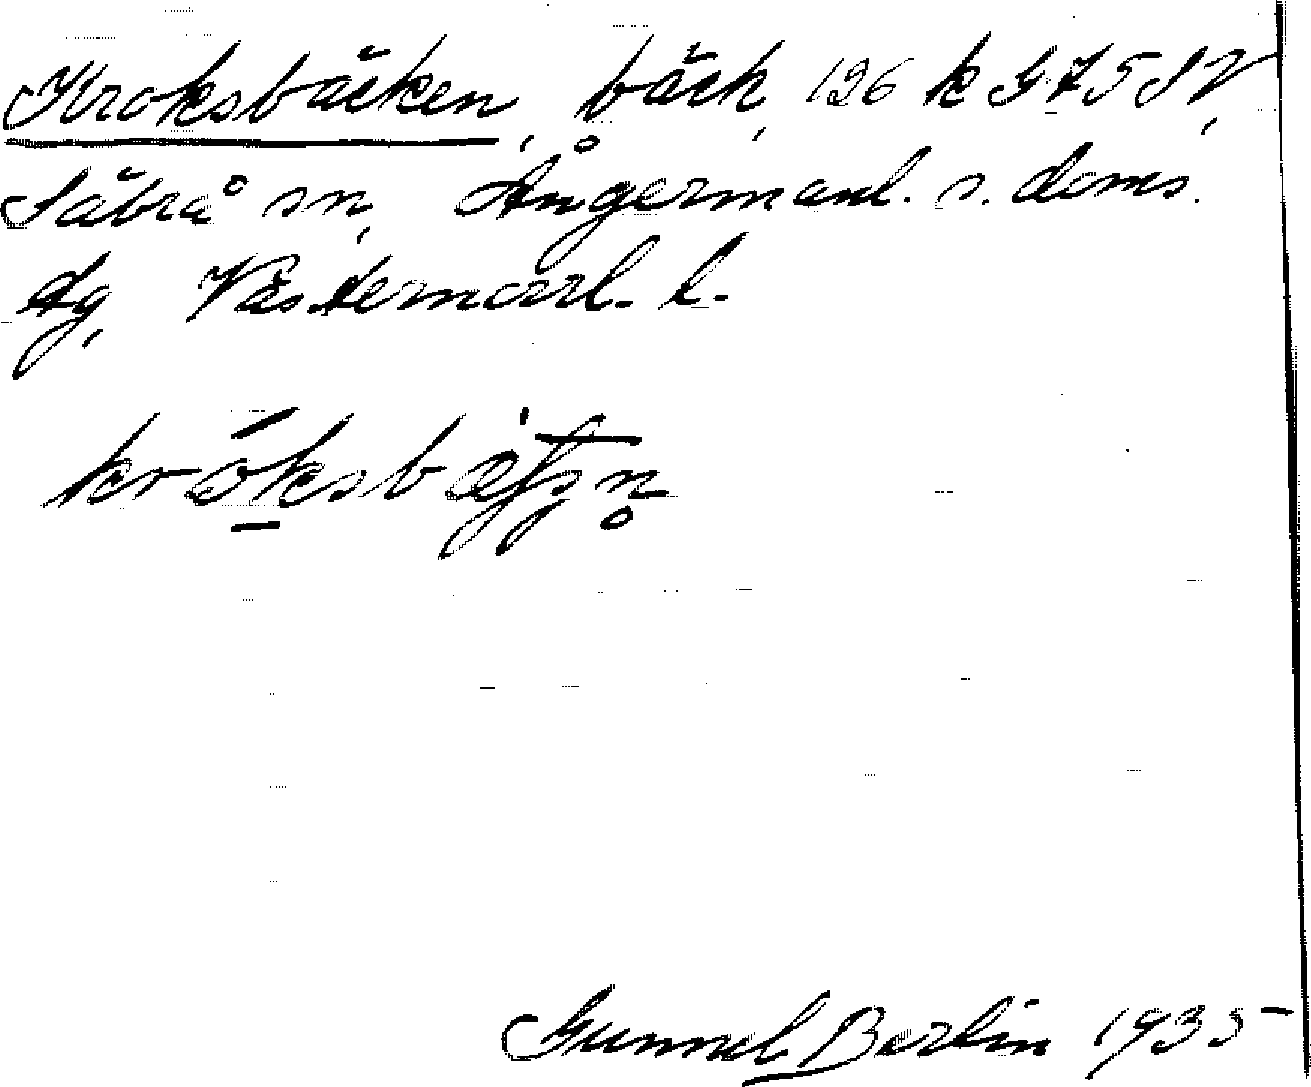 Kroksbäcken, bäck, 126 k G 7 5 SV,
Säbrå sn, Ångermanl. s. doms.
dg, Västernorrl. l.
Gunnel Berlin 1935